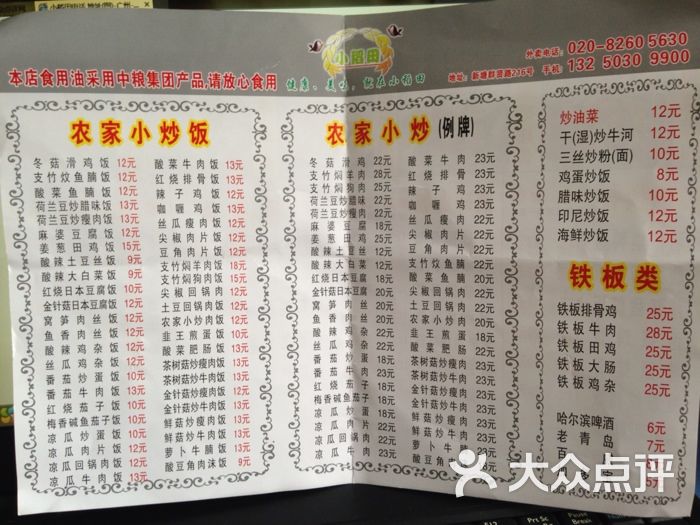 本店食用油采用中粮集团产品,请放心食用
小稻田
健康、美味,就在小稻田
外卖电话: 020-8260 5630
地址: 新塘群贤路215号 手机: 132 5030 9900
农家小炒饭
冬菇滑鸡饭 12元
支竹炆鱼腩饭 12元
酸菜鱼腩饭 12元
荷兰豆炒腊味饭 13元
荷兰豆炒瘦肉饭 13元
麻婆豆腐饭 12元
姜葱田鸡饭 15元
酸辣土豆丝饭 9元
酸辣大白菜饭 9元
红烧日本豆腐饭 10元
金针菇日本豆腐饭 12元
窝笋肉丝饭 12元
鱼香肉丝饭 12元
酸辣鸡杂饭 12元
丝瓜鸡杂饭 12元
番茄炒蛋饭 10元
番茄牛肉饭 13元
红烧茄子饭 10元
梅香碱鱼茄子饭 12元
凉瓜炒蛋饭 10元
凉瓜肉片饭 12元
凉瓜回锅肉饭 12元
凉瓜牛肉饭 13元
酸菜牛肉饭 13元
红烧排骨饭 13元
辣子鸡饭 12元
咖喱鸡饭 13元
丝瓜瘦肉饭 12元
尖椒肉片饭 12元
豆角肉片饭 12元
支竹焖羊肉饭 18元
支竹焖狗肉饭 15元
尖椒回锅肉饭 12元
土豆回锅肉饭 12元
农家小炒肉饭 12元
韭王煎蛋饭 12元
酸菜肥肠饭 13元
茶树菇炒瘦肉饭 13元
茶树菇炒牛肉饭 13元
金针菇炒瘦肉饭 12元
金针菇炒牛肉饭 13元
鲜菇炒瘦肉饭 12元
鲜菇炒牛肉饭 13元
萝卜牛腩饭 13元
酸豆角肉沫饭 9元
农家小炒(例牌)
冬菇滑鸡 22元
支竹焖羊肉 28元
支竹焖狗肉 25元
荷兰豆炒腊味 22元
荷兰豆炒瘦肉 22元
麻婆豆腐 18元
姜葱田鸡
酸辣土豆丝
酸辣大白菜
红烧日本豆腐
金针菇日本豆腐 20元
窝笋肉丝 22元
鱼香肉丝 22元
酸辣鸡杂 22元
丝瓜鸡杂 22元
番茄炒蛋 18元
番茄牛肉 23元
红烧茄子 18元
梅香碱鱼茄子 22元
凉瓜炒蛋 18元
凉瓜肉片 22元
凉瓜回锅肉 22元
凉瓜牛肉 23元
酸菜牛肉 23元
红烧排骨 23元
辣子鸡 23元
咖喱鸡 23元
丝瓜瘦肉 22元
尖椒肉片 22元
豆角肉片 22元
支竹炆鱼腩 22元
酸菜鱼腩 20元
尖椒回锅肉 22元
土豆回锅肉 22元
农家小炒肉 22元
韭王煎蛋
酸菜肥肠 23元
茶树菇炒瘦肉 23元
茶树菇炒牛肉 23元
金针菇炒瘦肉 22元
金针菇炒牛肉 23元
鲜菇炒瘦肉
鲜菇炒牛肉 23元
萝卜牛腩
酸豆角肉沫
炒油菜 12元
干(湿)炒牛河 12元
三丝炒粉(面) 10元
鸡蛋炒饭 8元
腊味炒饭 10元
印尼炒饭 12元
海鲜炒饭 12元
铁板类
铁板排骨鸡 25元
铁板牛肉 28元
铁板田鸡 25元
铁板大肠 25元
铁板鸡杂 25元
哈尔滨啤酒 6元
老青岛 7元
大众点评